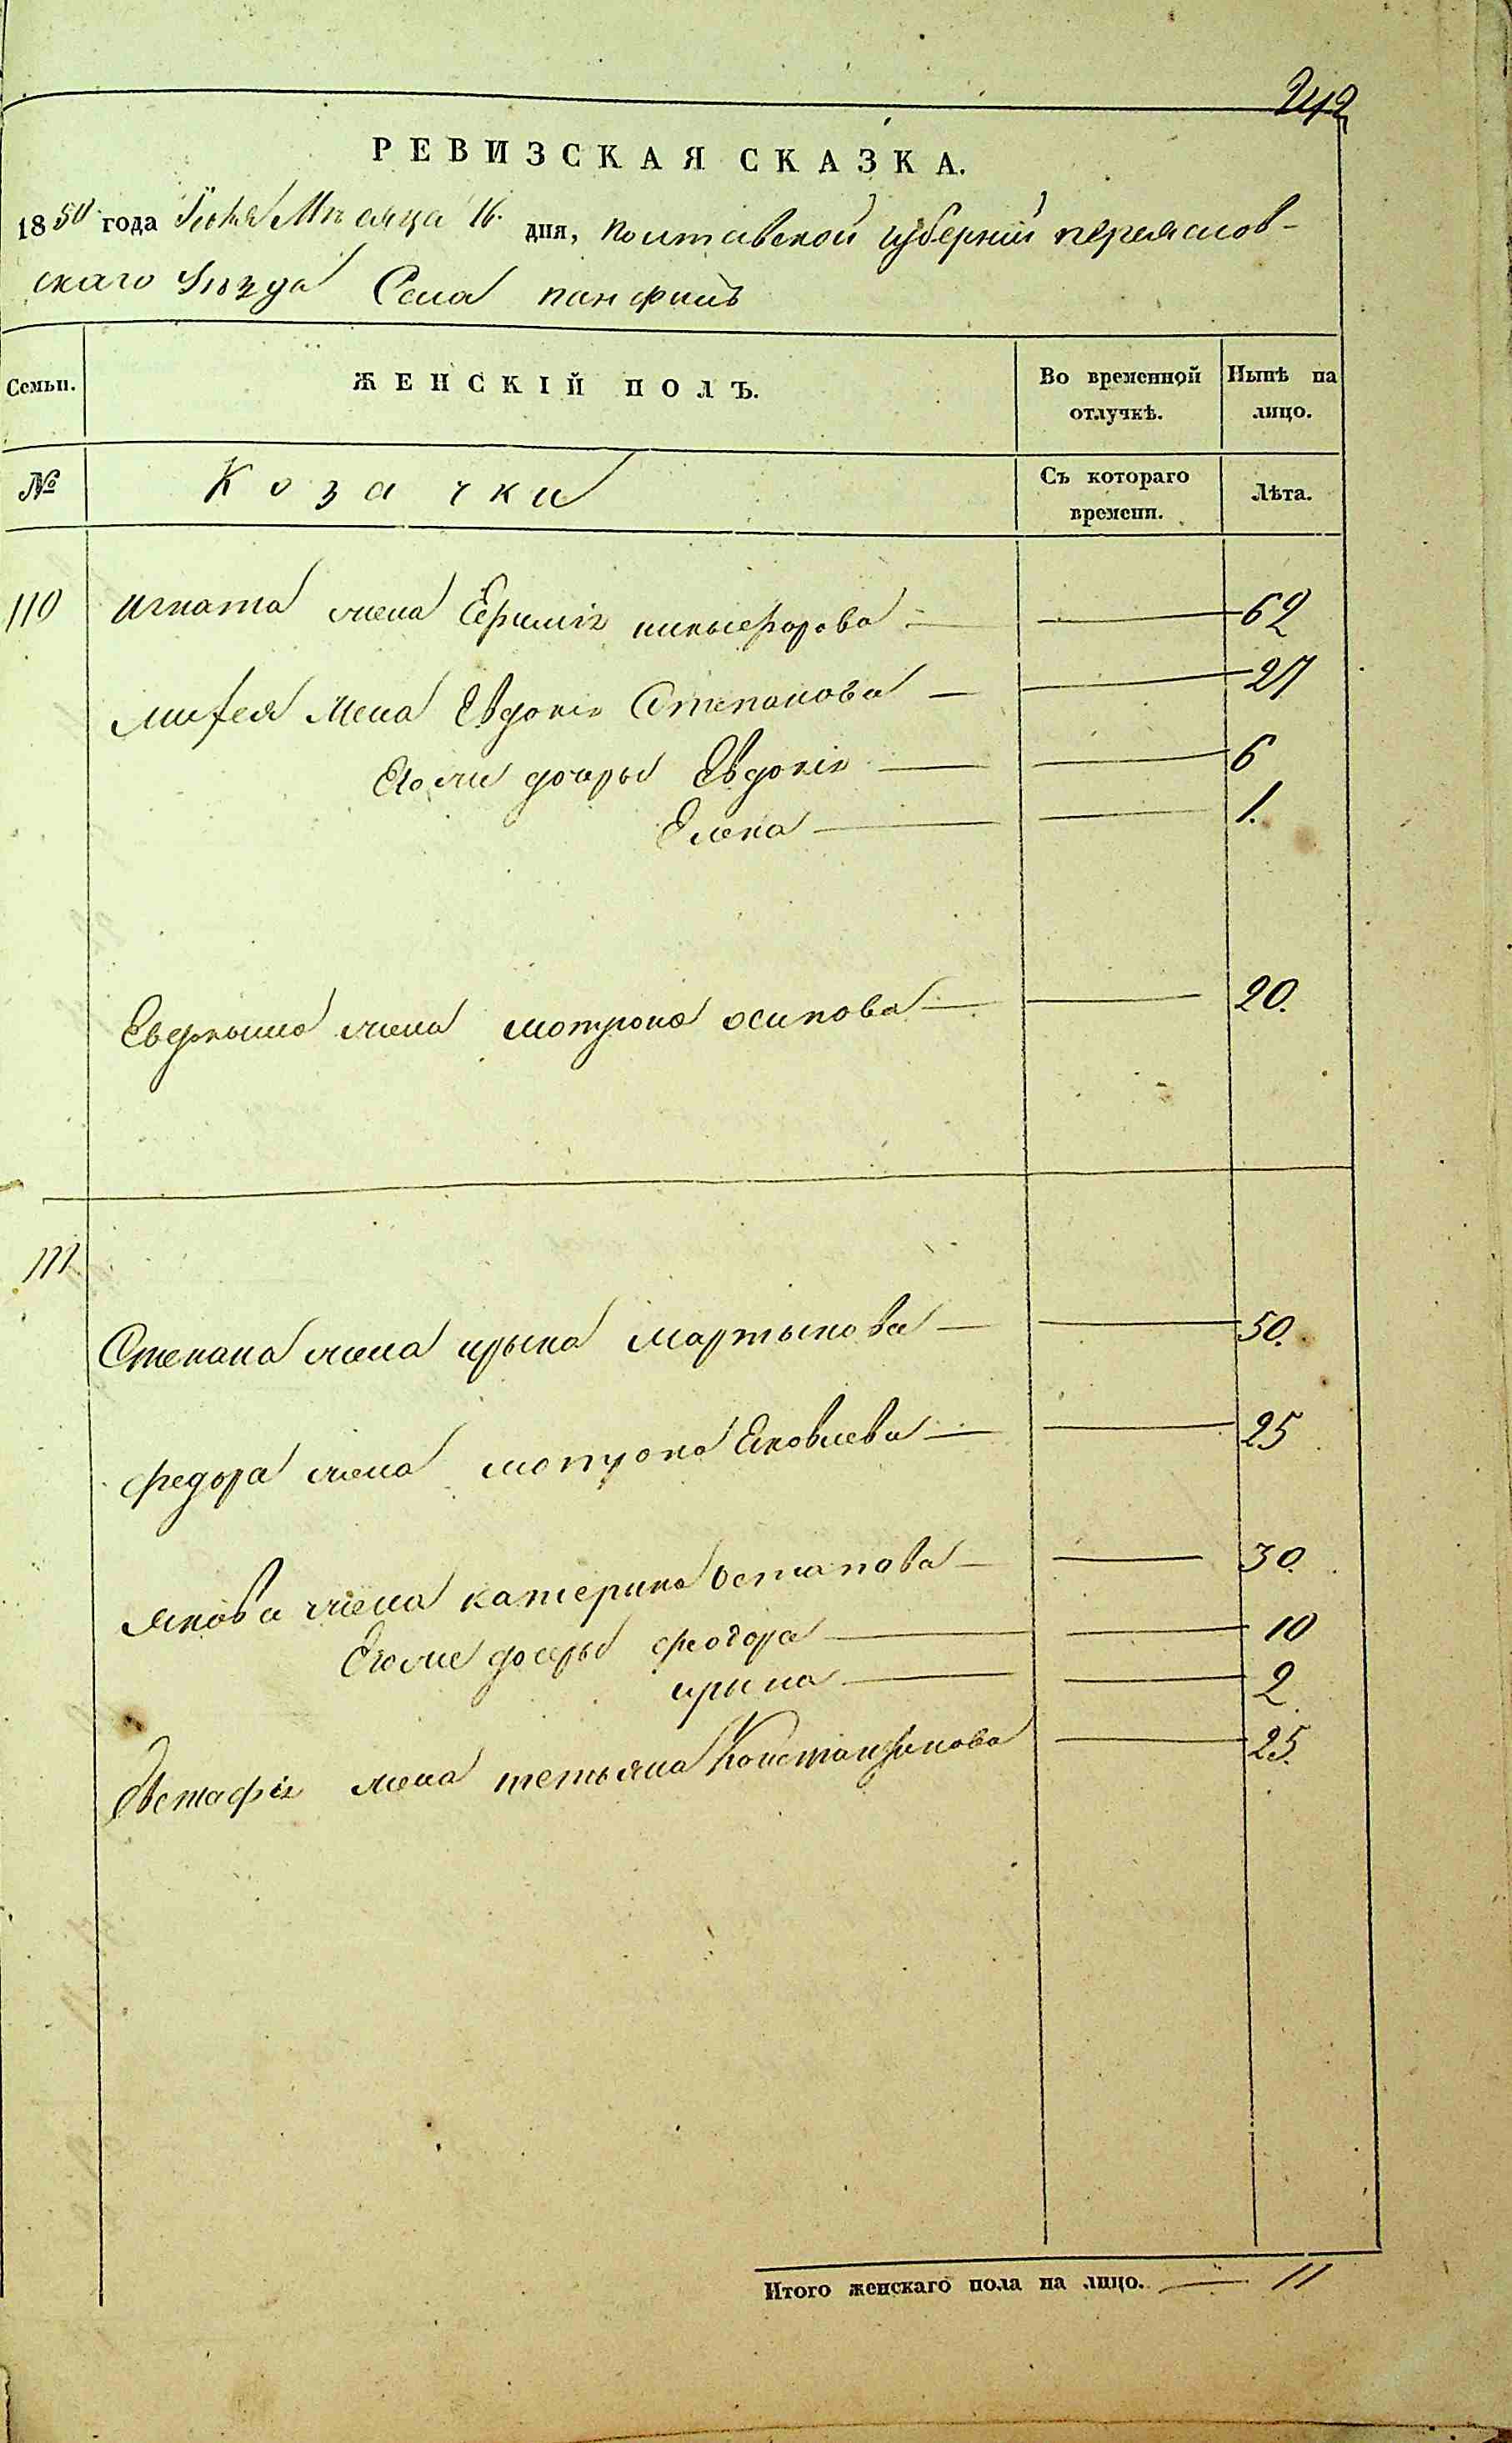 242
РЕВИЗСКАЯ СКАЗКА.
1850 года Июня Мѣсяца 16. дня, полтавской губернии переяслов-
скаго Уѣзда Села панфилъ
Семьи. ЖЕНСКІЙ ПОЛЪ. Во временной отлучкѣ. Нынѣ на лицо.
№ Козачки Съ котораго времени. Лѣта.
110 игната жена никыфорова 62
жена Евдокія Степанова 27
Его же дочеры Евдокія 6
Елена 1.
Евдокыма жена мотрона осипова 20.
111
Степана жена ирына мартынова 50.
федора жена мотрона Яковлева 25
якова жена катерина остапова 30.
Его же дочеры феодора 10
ирина 2.
Евстафія жена тетьяна Константинова 25.
Итого женскаго пола на лицо. 11